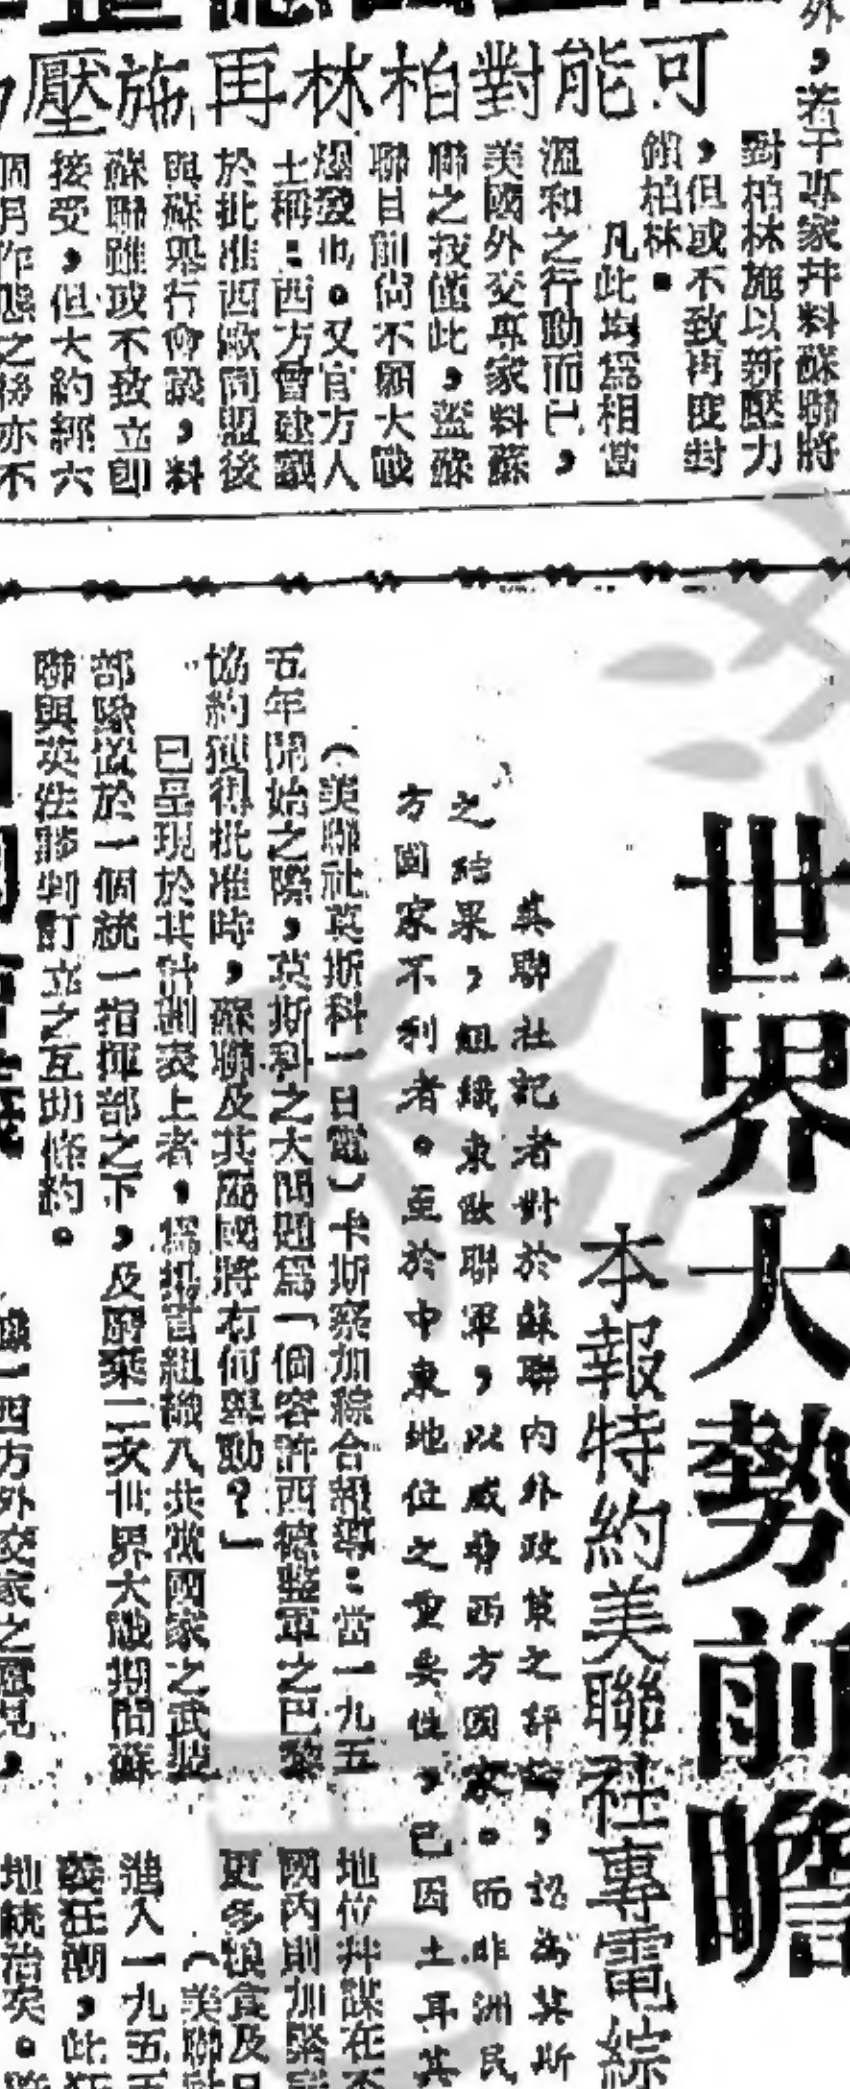 可能對柏林再施壓
外，若干專家并料蘇聯將
對柏林施以新壓力
，但或不致再度封
鎖柏林。
凡此均為相當
溫和之行動而已，
美國外交專家料蘇
聯之技僅此，蓋蘇
聯目前尚不願大戰
爆發也。又官方人
士稱：西方曾建議
於批准西歐同盟後
與蘇舉行會議，料
蘇聯雖或不致立即
接受，但大約經六
個月作態之後亦不
世界大勢前瞻
本報特約美聯社專電綜
美聯社記者對於蘇聯內外政策之評論，認為莫斯
之結果，組織東歐聯軍，以威脅西方國家。而非洲民
方國家不利者。至於中東地位之重要性，已因土耳其
（美聯社莫斯科一日電）卡斯察加綜合報導：當一九五
五年開始之際，莫斯科之大問題為「個容許西德整軍之巴黎
協約獲得批准時，蘇聯及其附國將有何舉動？」
已呈現於其計劃表上者，為擬首組織八共黨國家之武裝
部隊置於一個統一指揮部之下，及廢棄二次世界大戰期間蘇
聯與英法勝利訂立之互助條約。
一四方外交家之意見，
地位并謀在不
國內則加緊
更多糧食及日
（美聯社
進入一九五五
義狂潮，此狂
地統治矣。